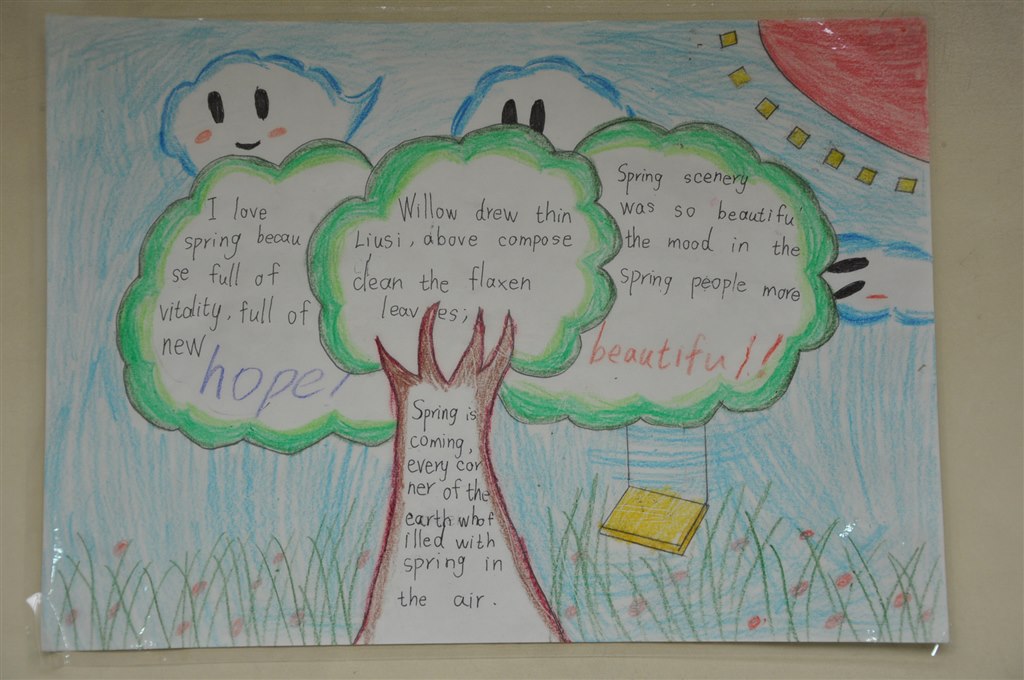 I love
spring becau
se full of
vitality, full of
new
hope!
Willow drew thin
Liusi, above compose
clean the flaxen
leaves;
Spring scenery
was so beautiful
the mood in the
spring people more
beautiful!!
Spring is
coming,
every cor
ner of the
earth whof
illed with
spring in
the air.